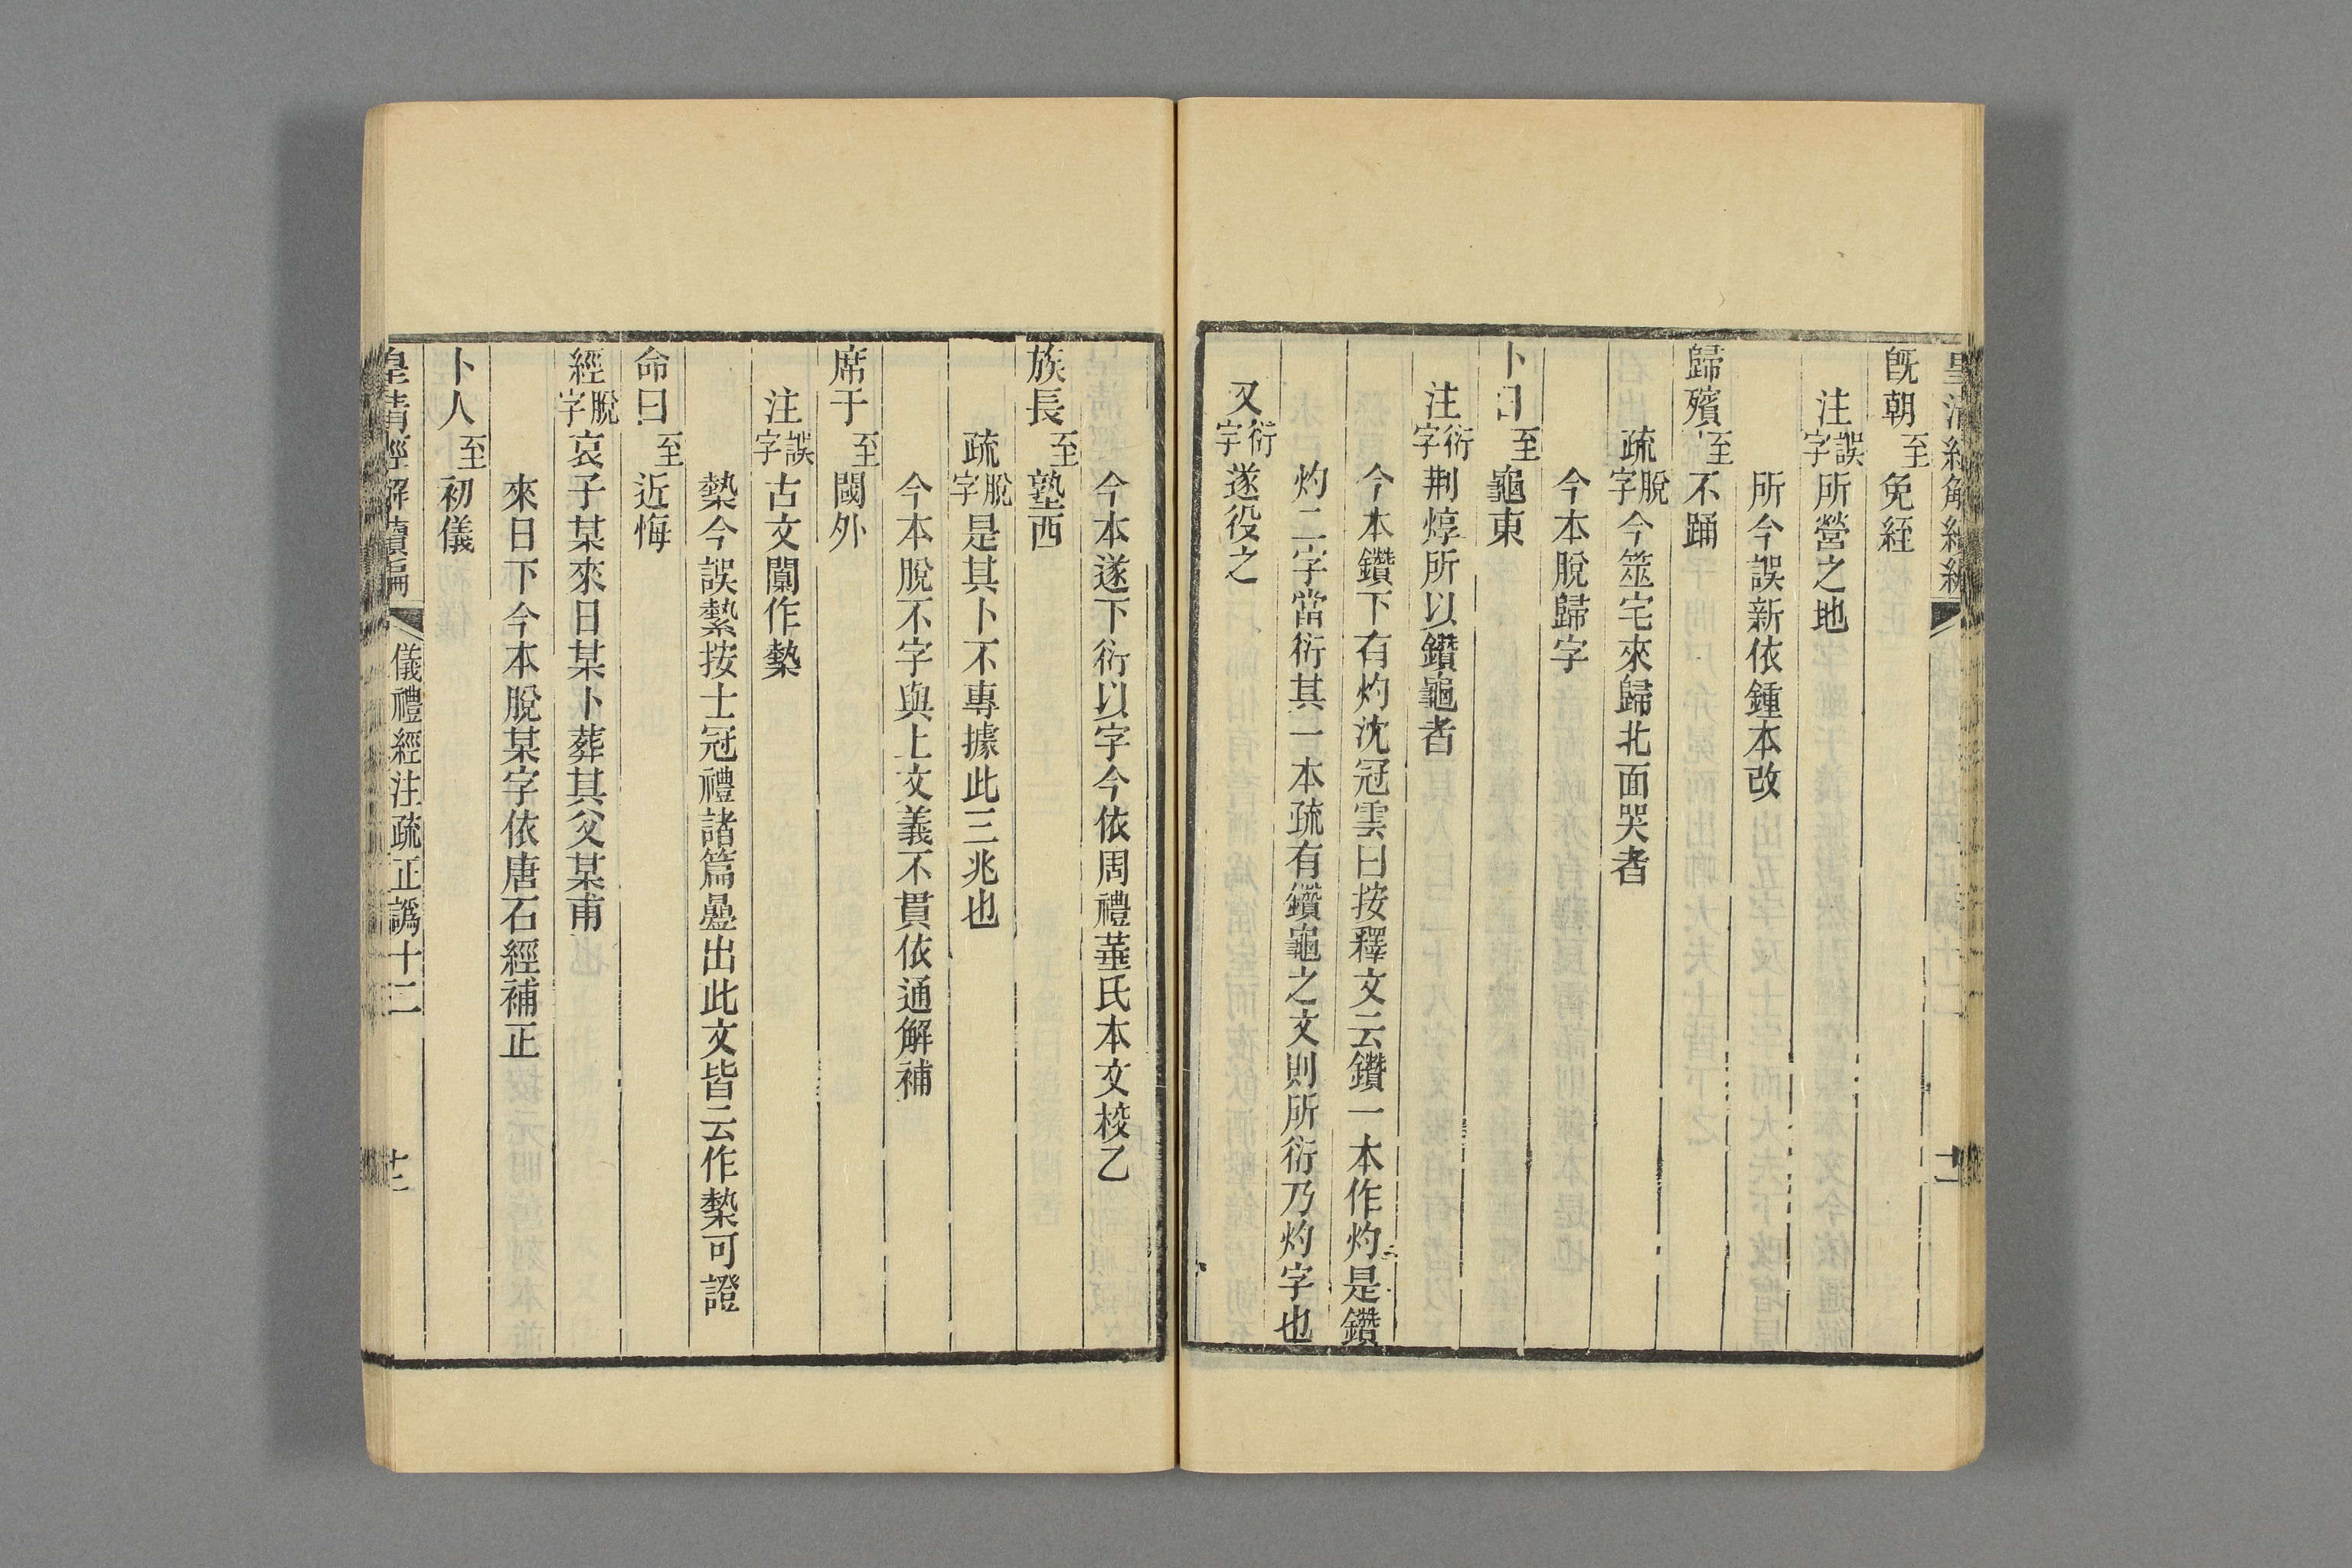 既朝至免絰
注誤字所營之地
所今誤新依鍾本改
歸殯至不踊
疏脫字今筮宅來歸北面哭者
今本脫歸字
卜日至龜東
注衍字荆焞所以鑽龜者
今本鑽下有灼沈冠雲曰按釋文云鑽一本作灼是鑽
灼二字當衍其一本疏有鑽龜之文則所衍乃灼字也
又衍字遂役之
今本遂下衍以字今依周禮菙氏本文校乙
族長至塾西
疏脫字是其卜不專據此三兆也
今本脫不字與上文義不貫依通解補
席于至閾外
注誤字古文闑作槷
槷今誤縶按士冠禮諸篇曡出此文皆云作槷可證
命曰至近悔
經脫字哀子某來日某卜葬其父某甫
來日下今本脫某字依唐石經補正
卜人至初儀
皇清經解續編 儀禮經注疏正譌十二